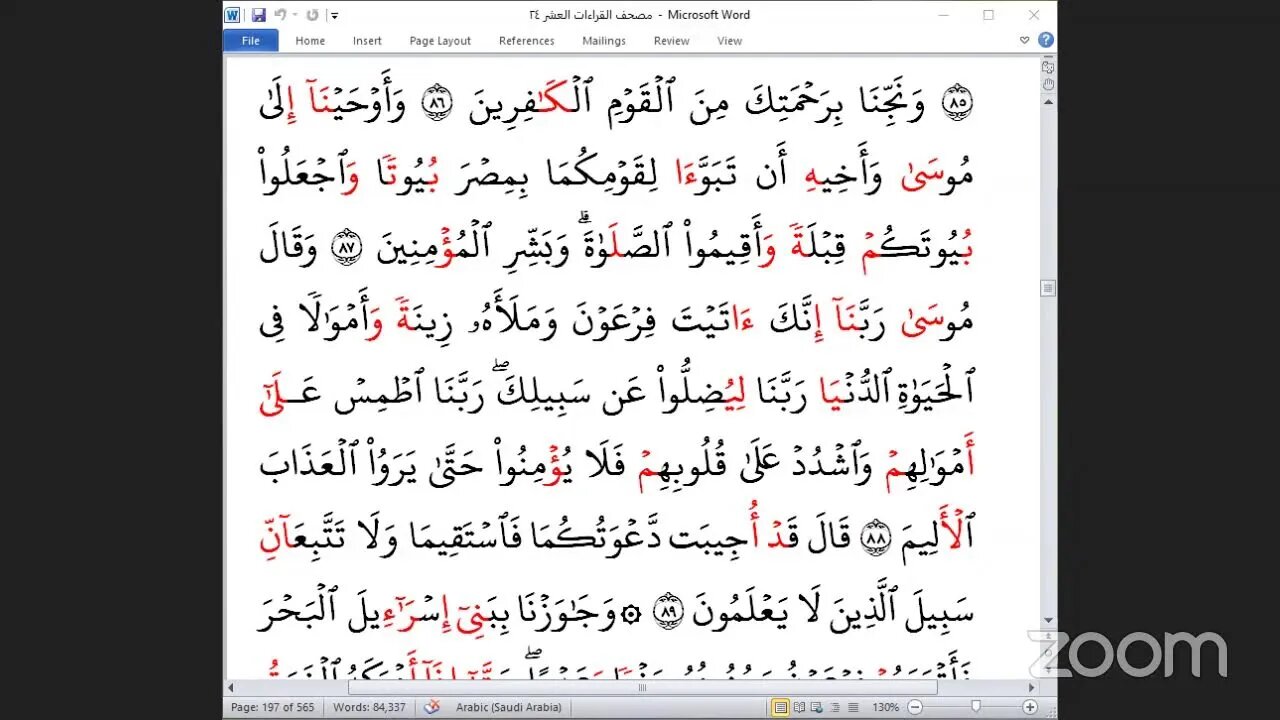 مصحف القراءات العشر ٢٤ - Microsoft Word
File Home Insert Page Layout References Mailings Review View
٨٥ وَنَجِّنَا بِرَحْمَتِكَ مِنَ ٱلْقَوْمِ ٱلْكَٰفِرِينَ ٨٦ وَأَوْحَيْنَآ إِلَىٰ
مُوسَىٰ وَأَخِيهِ أَن تَبَوَّءَا لِقَوْمِكُمَا بِمِصْرَ بُيُوتًا وَٱجْعَلُوا۟
بُيُوتَكُمْ قِبْلَةً وَأَقِيمُوا۟ ٱلصَّلَوٰةَ ۗ وَبَشِّرِ ٱلْمُؤْمِنِينَ ٨٧ وَقَالَ
مُوسَىٰ رَبَّنَآ إِنَّكَ ءَاتَيْتَ فِرْعَوْنَ وَمَلَأَهُۥ زِينَةً وَأَمْوَٰلًا فِى
ٱلْحَيَوٰةِ ٱلدُّنْيَا رَبَّنَا لِيُضِلُّوا۟ عَن سَبِيلِكَ ۖ رَبَّنَا ٱطْمِسْ عَلَىٰٓ
أَمْوَٰلِهِمْ وَٱشْدُدْ عَلَىٰ قُلُوبِهِمْ فَلَا يُؤْمِنُوا۟ حَتَّىٰ يَرَوُا۟ ٱلْعَذَابَ
ٱلْأَلِيمَ ٨٨ قَالَ قَدْ أُجِيبَت دَّعْوَتُكُمَا فَٱسْتَقِيمَا وَلَا تَتَّبِعَآنِّ
سَبِيلَ ٱلَّذِينَ لَا يَعْلَمُونَ ٨٩ ۞ وَجَٰوَزْنَا بِبَنِىٓ إِسْرَٰٓءِيلَ ٱلْبَحْرَ
zoom
Page: 197 of 565 Words: 84,337 Arabic (Saudi Arabia) 130%